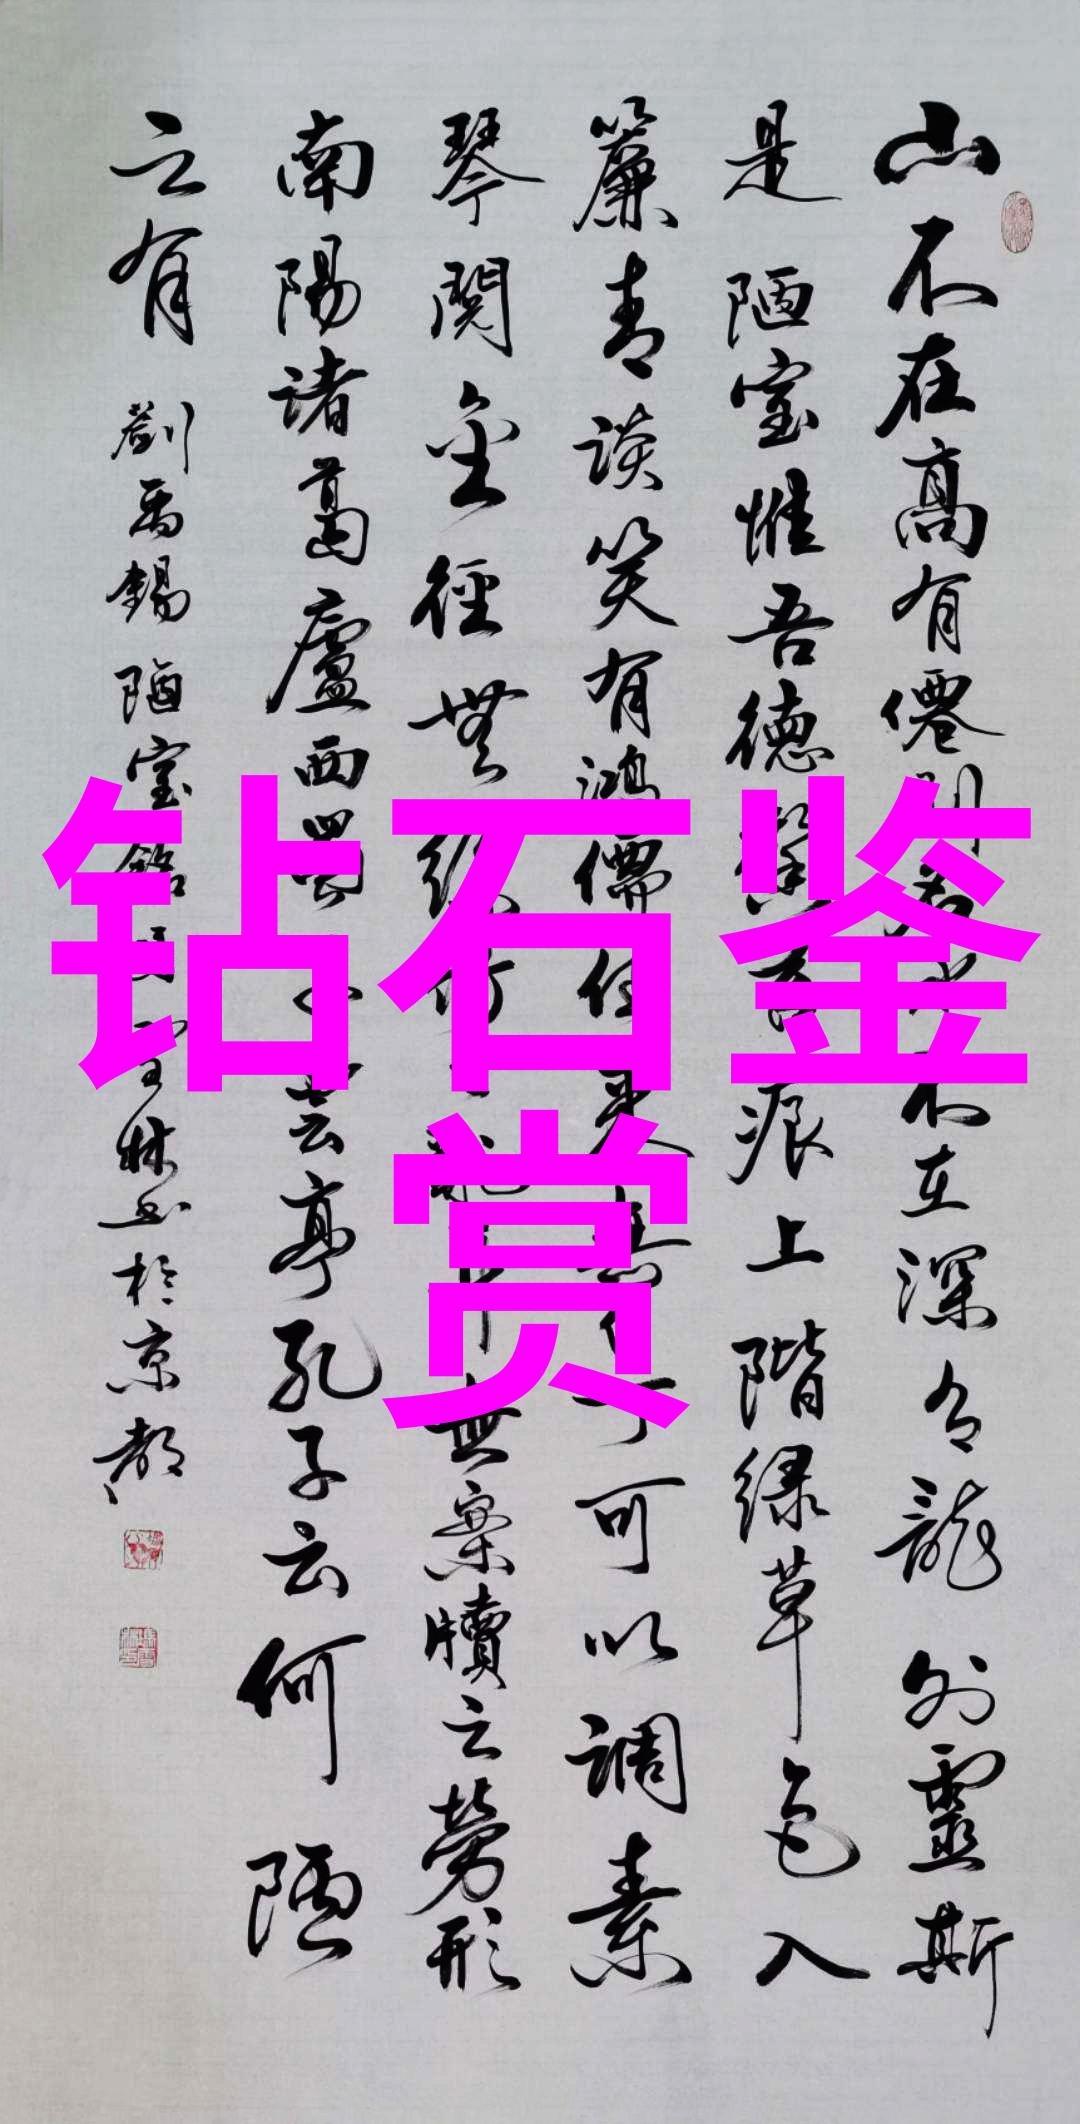 钻石鉴
赏
山不在高有僊則名水不在深有龍則靈斯
是陋室惟吾德馨苔痕上階绿草色入
簾青談笑有鴻儒往来無白丁可以調素
琴閱金徑無絲竹之亂耳無案牘之勞形
南陽諸葛廬西蜀子雲亭孔子云何陋
之有 劉禹錫陋室銘 林书於京都